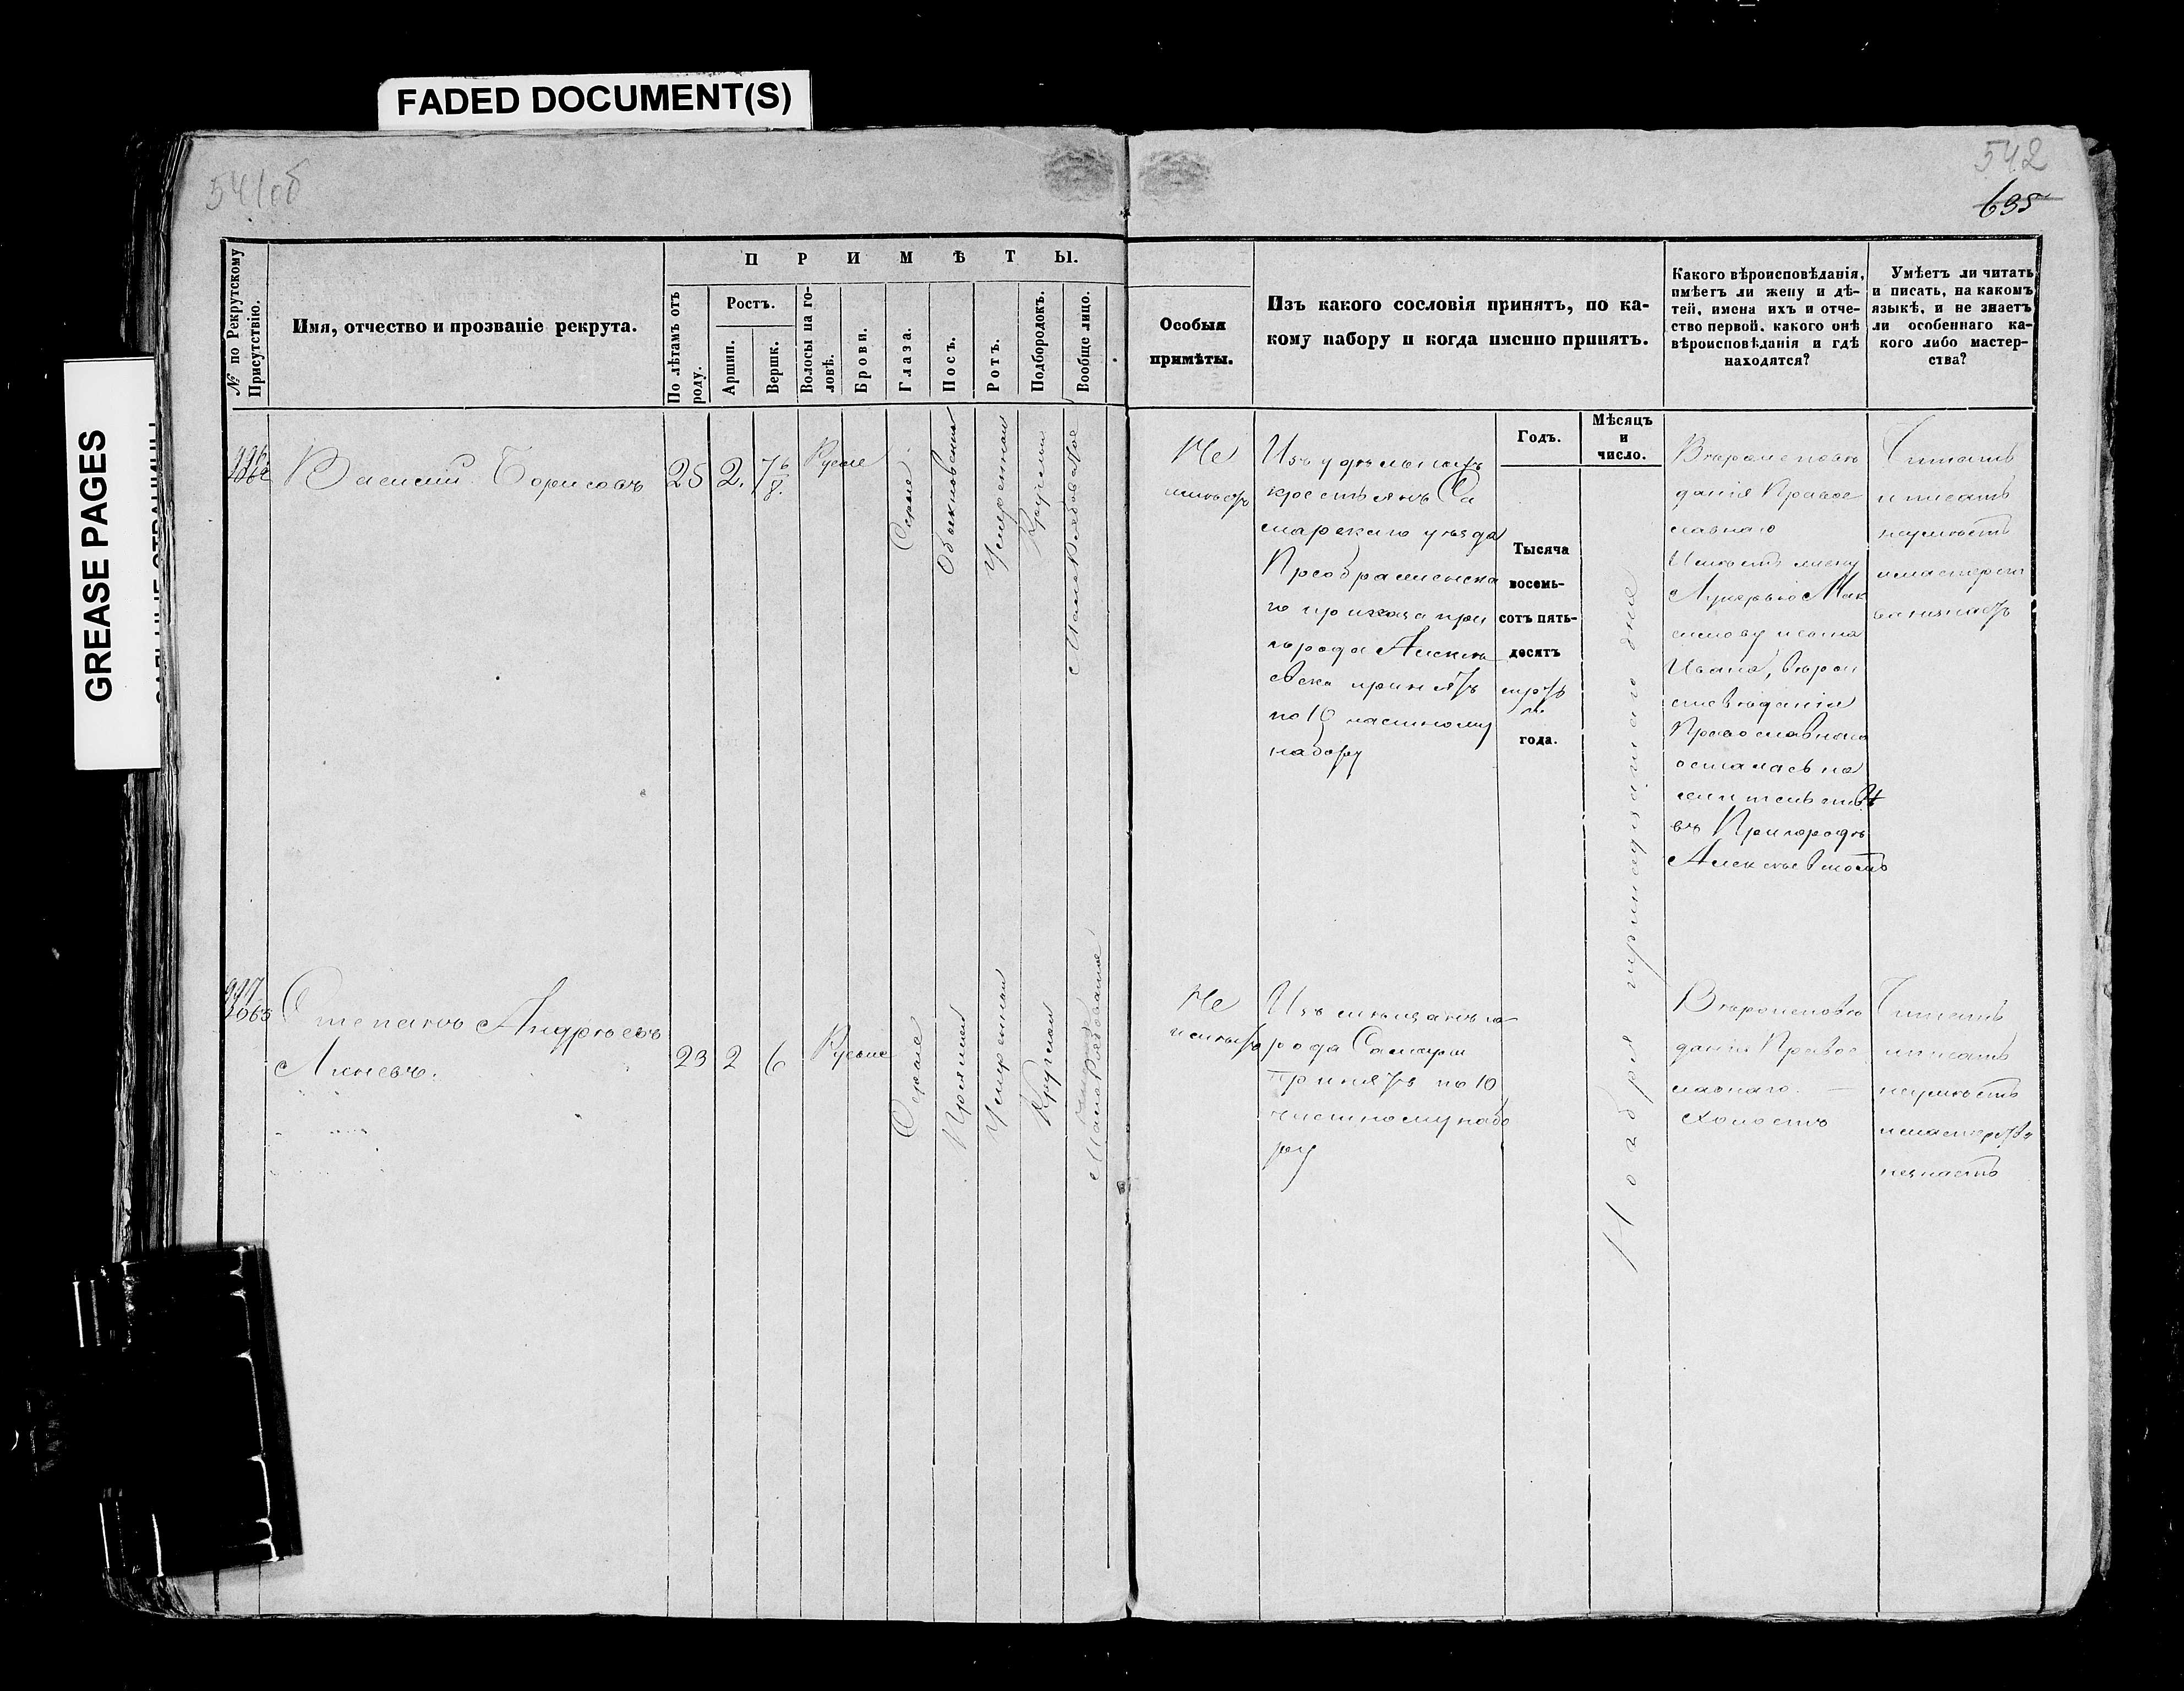 FADED DOCUMENT(S)
GREASE PAGES
541об
542
635
№ по Рекрутскому Присутствію.
Имя, отчество и прозваніе рекрута.
ПРИМѢТЫ.
По лѣтамъ отъ роду.
Ростъ.
Аршин.
Вершк.
Волосы на головѣ.
Брови.
Глаза.
Носъ.
Ротъ.
Подбородокъ.
Вообще лицо.
Особыя
примѣты.
Изъ какого сословія принятъ, по ка-
кому набору и когда именно принятъ.
Какого вѣроисповѣданія,
имѣетъ ли жену и дѣ-
тей, имена ихъ и отче-
ство первой, какого онѣ
вѣроисповѣданія и гдѣ
находятся?
Умѣетъ ли читать
и писать, на какомъ
языкѣ, и не знаетъ
ли особеннаго ка-
кого либо мастер-
ства?
Василий Борисовъ
25
2.
7 6/8.
Русые
Серые
Обыкновенный
Умеренный
Круглый
Мало Рябоватое
Не
имѣетъ
Изъ удѣльныхъ
крестьянъ Са
марскаго уѣзда
Преображенска
го приказа при
города Алексѣ
евска принятъ
по 10 частному
набору
Годъ.
Тысяча
восемь-
сотъ пять-
десятъ
третьяго
года.
Мѣсяцъ
и
число.
Ноября тринадцатаго дня
Вѣроисповѣ
данія Правос
лавнаго
Имѣетъ жену
Лукерью Мак
симову и сына
Ивана, вѣрои
споведанія
Православнаго
осталась на
жительствѣ
въ Пригородѣ
Алексѣевскомъ
Читать
и писать
неумѣетъ
и мастерст
ва незнаетъ
997
Степанъ Андрѣевъ
23
2
6
Русые
Серые
Прямой
Умеренный
Круглый
Мало Рябоватое
Не
имѣетъ
Изъ мѣщанъ го
рода Самары
принятъ по 10
частному набо
ру
Вѣроисповѣ
данія Правос
лавнаго.
Холостъ
Читать
и писать
неумѣетъ
и мастерства
незнаетъ